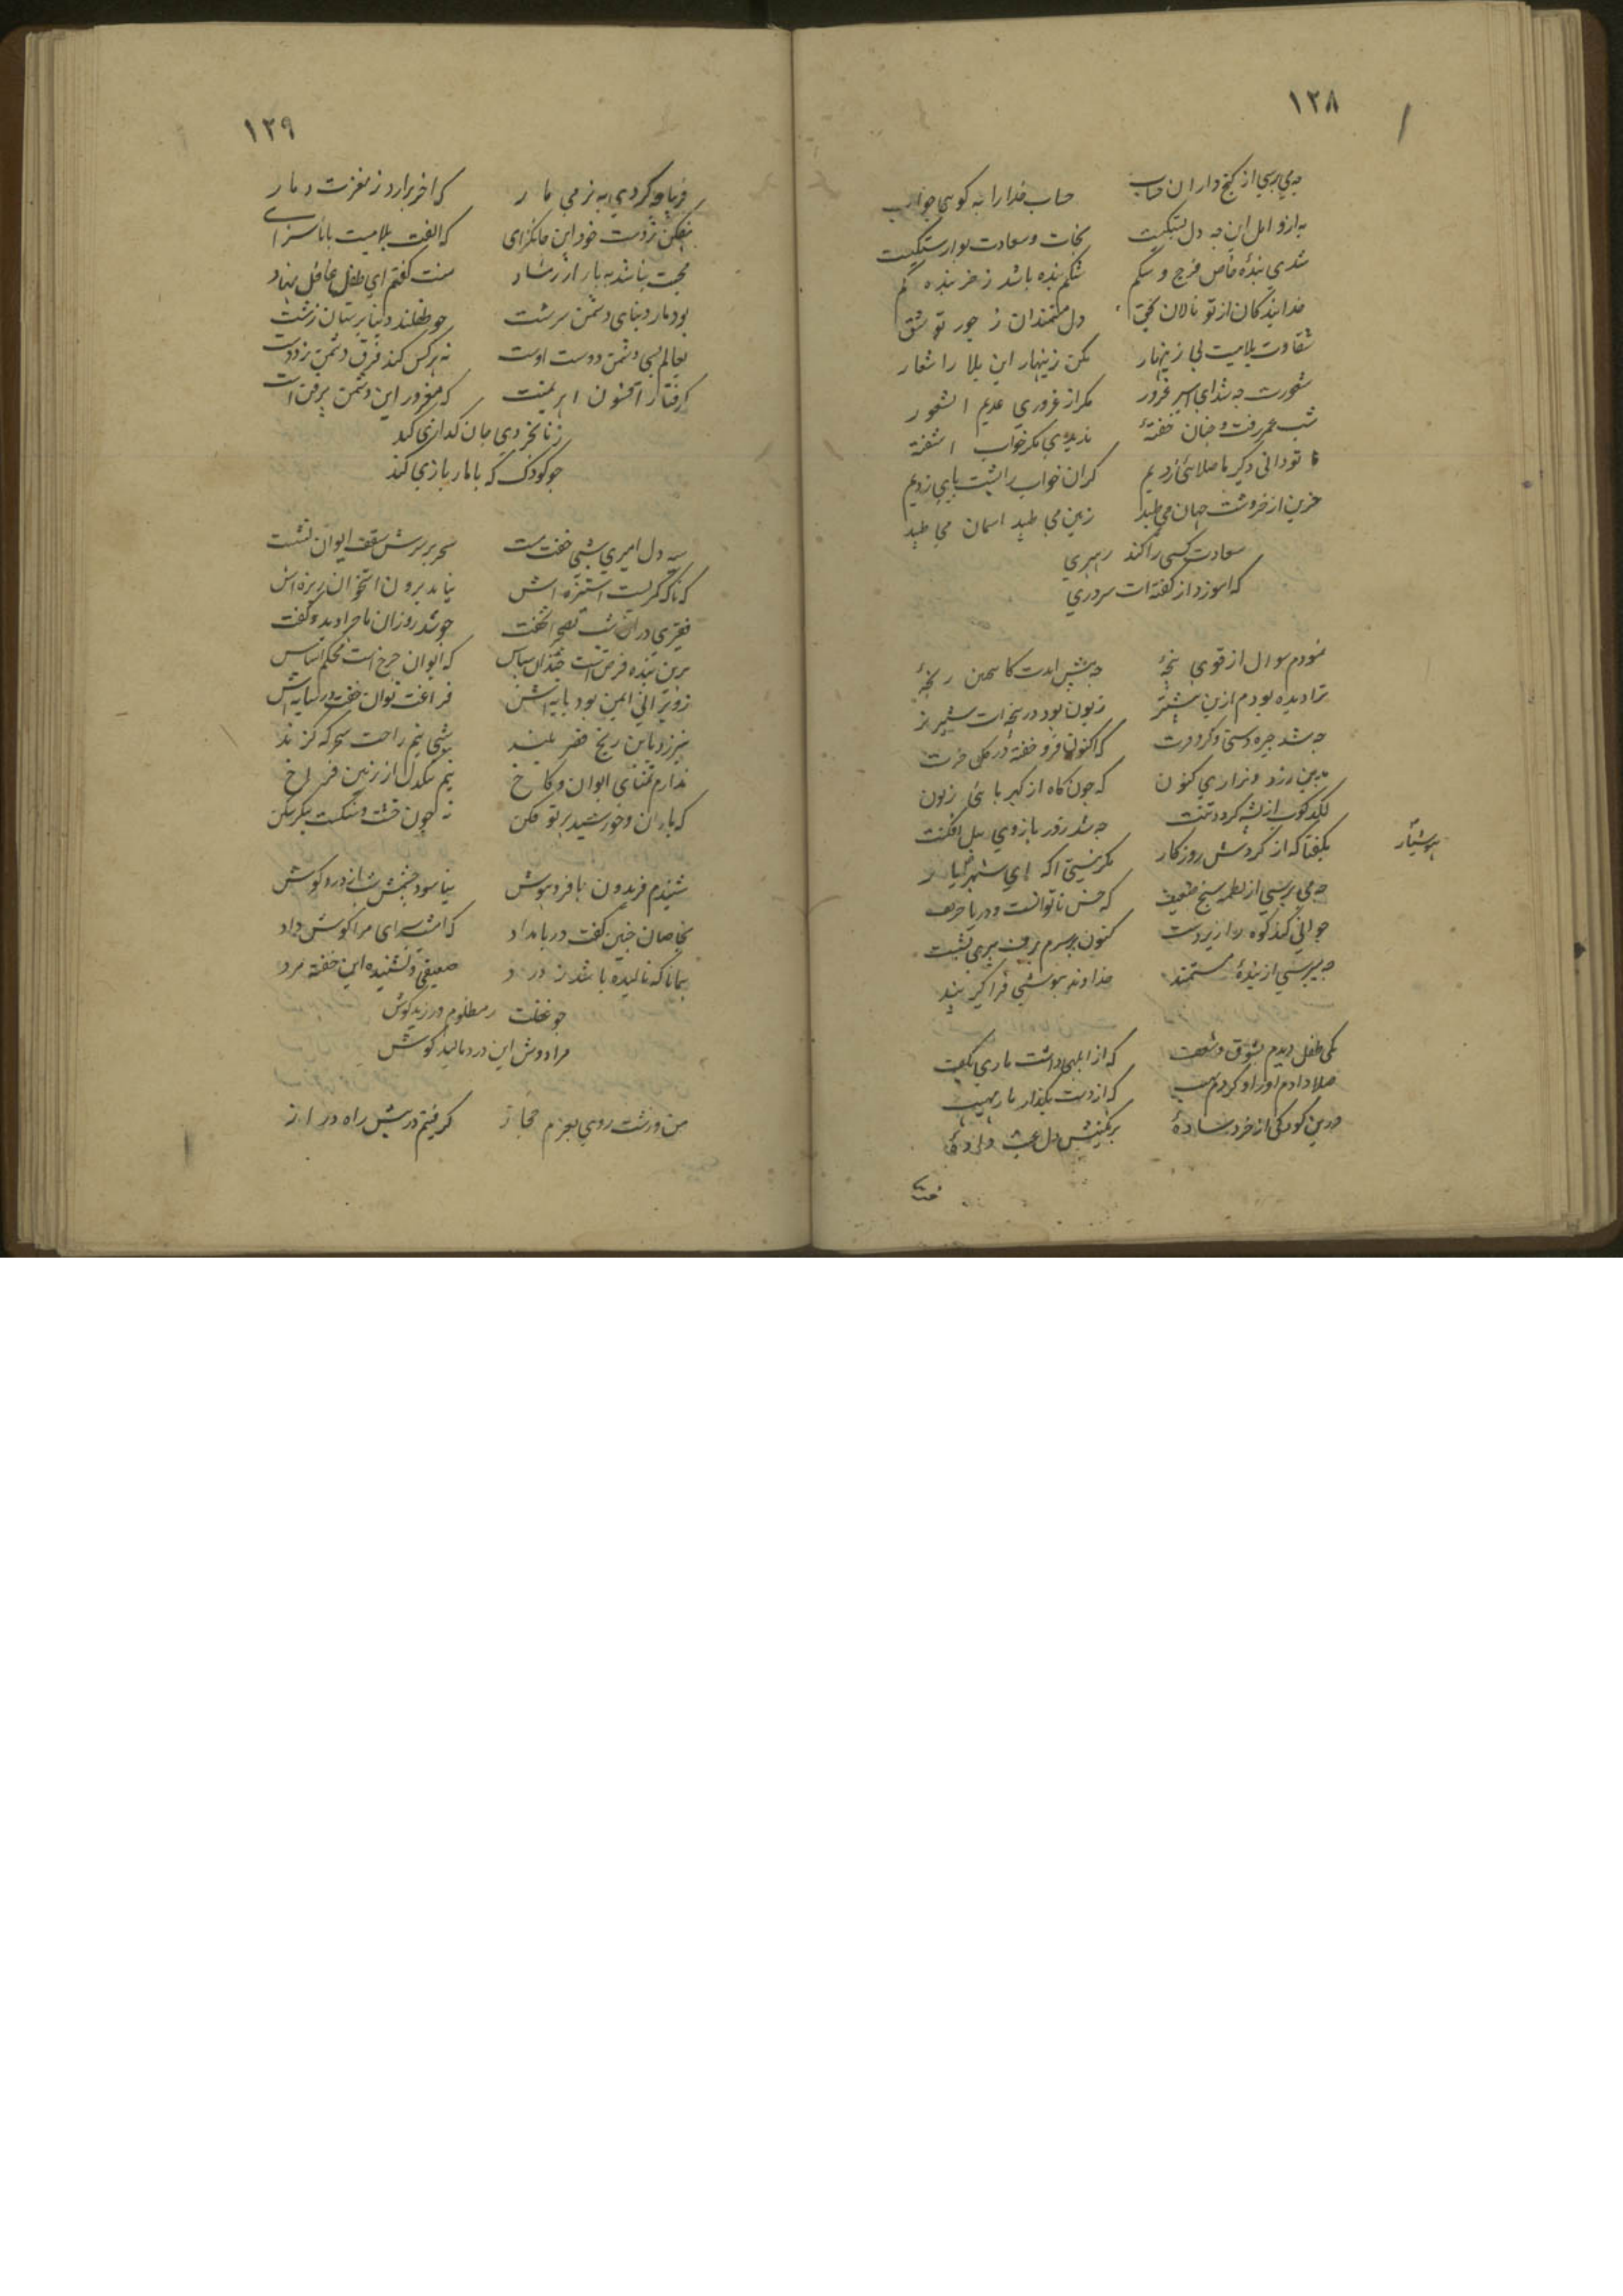 ۱۲۸
چه می پرسی از گنج داران حساب حساب خدا را به کو سی جواب
شدی بندهٔ خاص فرج و شکم شکم بنده باشد ز خر بنده کم
خدا بندگان از تو نالان بحق دل مستمندان ز جور تو شق
شقاوت بلاییست بی زینهار مکن زینهار این بلا را شعار
شعورت چه شد ای اسیر غرور مگر از غروری عدیم الشعور
شب عمر رفت و چنان خفتهٔ ندیدی مگر خواب آشفتهٔ
تو دانی دگر ما صلائی زدیم گران خواب را پشت پایی زدیم
حزین از خروشت جهان می طپد زمین می طپد آسمان می طپد
سعادت کسی را کند رهبری
که آموزد از گفته ات سروری
نمودم سوال از قوی پنجهٔ چه پیش آمدت کاین چنین رنجهٔ
ترا دیده بودم ازین پیشتر زبون بود در پنجه ات شیر نر
چه شد چیره دستی و کر و فرت که اکنون فرو خفته در گل خرت
بدین زرد و زاری کنون که چون کاه از کهربائی زبون
لگدکوب از پشه گردد تنت چه شد زور بازوی پیل افکنت
بگفتا که از گردش روزگار مگر نیستی آگه ای شهریار
هوشیار
چه می پرسی از لطمه سنج ضعیف که خس ناتوانست و دریا حریف
جوانی کند کوه را زیردست کنون بر سرم برف پیری نشست
چه می پرسی از بندهٔ مستمند خداوند هوشی فرا گیر پند
یکی طفل دیدم بشوق و شعف که از ابلهی داشت ماری بکف
صلا دادم او را و کردم نهیب که از دست بگذار مار مهیب
درین کودکی از خرد سادهٔ برنگینیش دل عبث دادهٔ
۱۲۹
فریاد کردی به نرمی مار که آخر برارد ز مغزت دمار
بیفکن ز دست خود این جانگزای که الفت بلاییست با ناسزای
محبت نباشد به بار از رشاد منت گفتم ای طفل غافل نهاد
بود مار دنیای دشمن سرشت چو طفلند دنیا پرستان زشت
بعالم بسی دشمن دوست اوست نه هر کس کند فرق دشمن ز دوست
گرفتار افسون اهریمنست که مغرور این دشمن پر فن است
ز نابخردی جان گدازی کند
چو کودک که با مار بازی کند
سیه دل امیری شبی خفت مست سحر بر سرش سقف ایوان نشست
نیامد برون استخوان ریزه اش
فقیری در آن شب بصحرا بخفت چو شد روز آن ماجرا دید و گفت
برین بنده فرض است چندان سپاس که ایوان چرخ است محکم اساس
ز ویرانی ایمن بود پایه اش فراغت توان خفت در سایه اش
نیرزد باین رنج قصر بلند شبی نیم راحت سحر که گزند
ندارم تمنای ایوان و کاخ نیم تنگدل از زمین فراخ
که باران و خورشید پرتو فکن نه چون خشت و سنگست پیکر شکن
شنیدم فریدون با فر و هوش نیاسود چشمش شبانی ز درد گوش
بخاصان چنین گفت در بامداد که امشب سزای مرا گوش داد
همانا که نالیده باشد ز درد ضعیفی و نشنیده این خفته مرد
چو غفلت ز مظلوم ورزید گوش
مرا دوش این درد مالید گوش
من و زشت رویی بعزم حجاز گرفتیم در پیش راه دراز